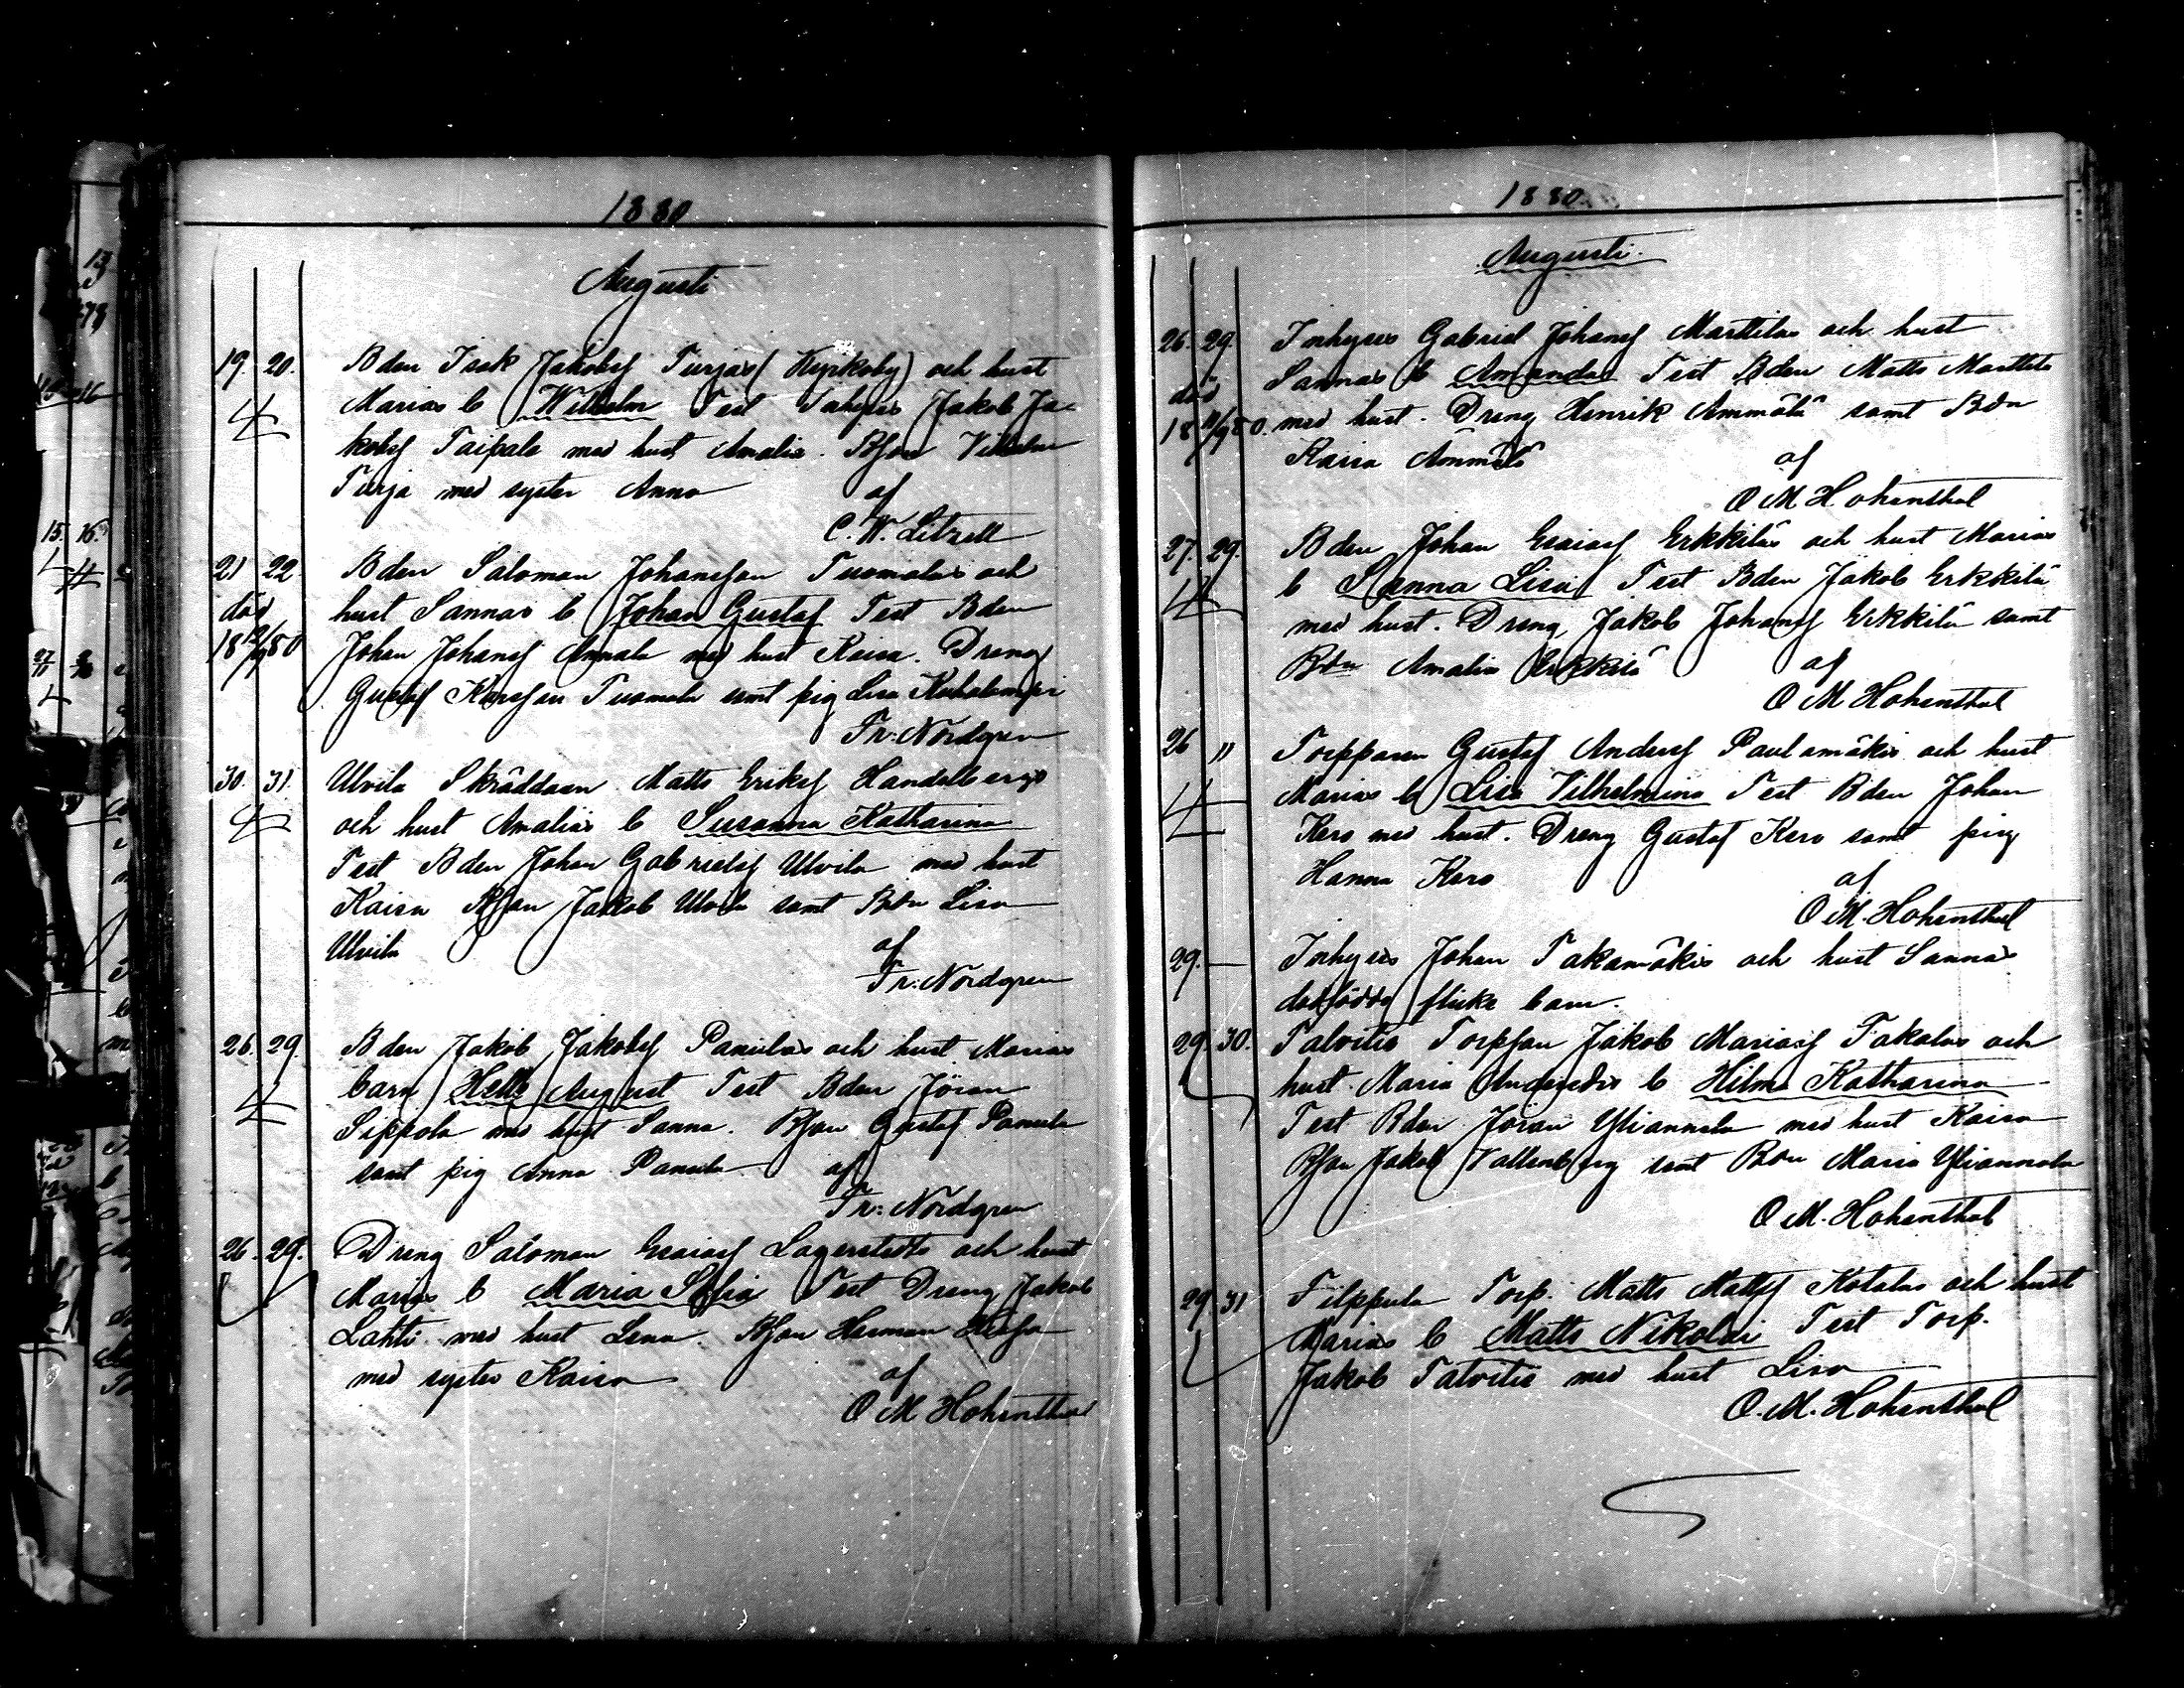 1880
Augusti
19. 20. Bden Isak Jakobsf Turjas (Kyrkoby) och hust
Marias b Wilhelm Test Inhyses Jakob Ja-
kobsf Taipale med hust Amalia. Bson Vilhelm
Turja med syster Anna af
C. W. Litzell
21 22. Bden Saloman Johansson Tuomalas och
död hust Sannas b Johan Gustaf Test Bden
18 12/9 80 Johan Johansf Annala med hust Kaisa. Dreng
Gustaf Karsson Tuomala samt pig Lisa Kuhalampi
Fr: Nordgren
30. 31. Ulvila Skräddaren Matts Eriksf Handelbergs
och hust Amalias b Susanna Katharina
Test Bden Johan Gabrielsf Ulvila med hust
Kaisa Bson Jakob Ulvila samt Bdn Lisa
Ulvila af
Fr: Nordgren
26. 29. Bden Jakob Jakobsf Panulas och hust. Marias
barn August Test Bden Jöran
Sippola med hust Sanna. Bson Gustaf Panula
samt pig Anna Panula af
Fr: Nordgren
26. 29. Dreng Saloman Esaiasf Lagerstedts och hust
Marias b Maria Sofia Test Dreng Jakob
Lahti med hust Lena. Bson Herman
med syster Kaisa af
O M Hohenthal
1880.
Augusti.
26. 29. Inhyses Gabriel Johansf Marttilas och hust
död Sannas b Amanda Test Bden Matts Marttila
18 11/9 80. med hust. Dreng Henrik Ämmälä samt Bdn
Kaisa Ämmälä af
O M Hohenthal
27. 29. Bden Johan Esaiasf Erkkiläs och hust Marias
b Sanna Lisa Test Bden Jakob Erkkilä
med hust. Dreng Jakob Johansf Erkkilä samt
Bdn Amalia Erkkilä af
O M Hohenthal
26 " Torpparen Gustaf Andersf Paulamäkis och hust
Marias b Lisa Vilhelmina Test Bden Johan
Kero med hust. Dreng Gustaf Kero samt pig
Hanna Kero af
O. M. Hohenthal
29. — Inhyses Johan Takamäkis och hust Sannas
dödfödda flicke barn.
29. 30. Talvitie Torpson Jakob Mariasf Takalas och
hust. Maria Andersdrs b Hilma Katharina
Test Bden Jöran Yliannala med hust Kaisa
Bson Jakob Vallenberg samt Bdn Maria Yliannala
O. M. Hohenthal
29 31 Filppula Torp. Matts Mattsf Kotalas och hust
Marias b Matts Nikolai Test Torp.
Jakob Talvitie med hust Lisa
O. M. Hohenthal